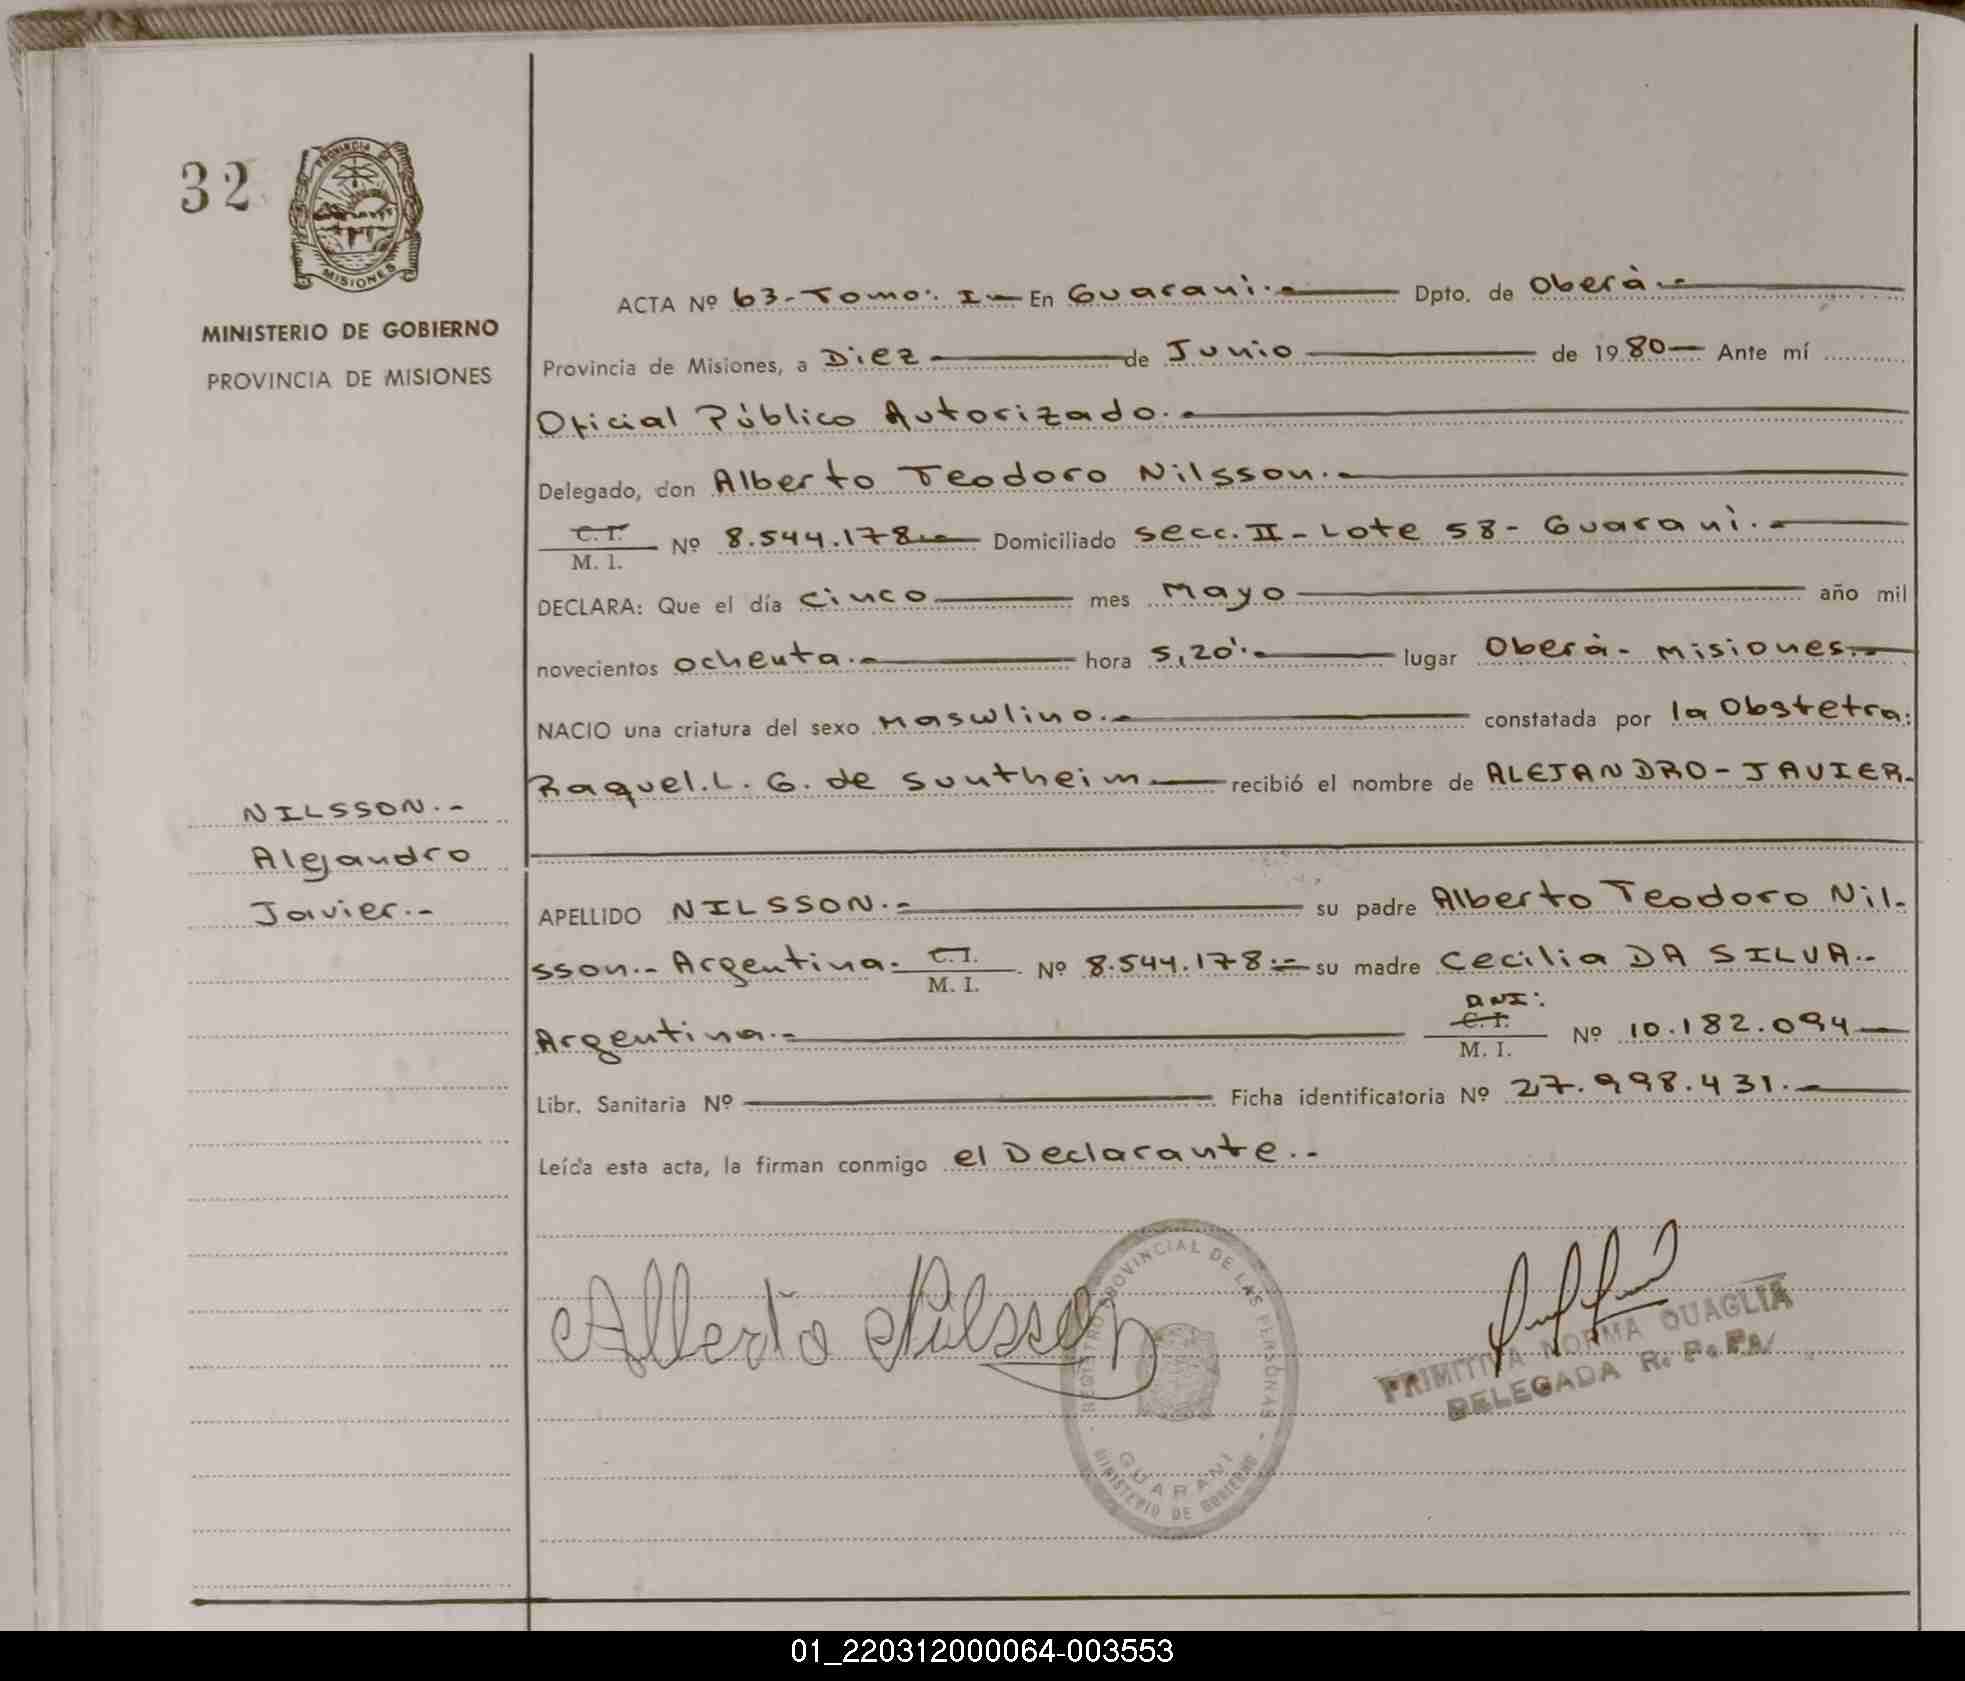 32
PROVINCIA DE
MISIONES
MINISTERIO DE GOBIERNO
PROVINCIA DE MISIONES
NILSSON.-
Alejandro
Javier.-
ACTA Nº 63-Tomo: I- En Guaraní.- Dpto. de Oberá.-
Provincia de Misiones, a Diez de Junio de 1980- Ante mí
Oficial Público Autorizado.-
Delegado, don Alberto Teodoro Nilsson.-
C.I.
M. I. Nº 8.544.178.- Domiciliado secc. II - Lote 58 - Guaraní.-
DECLARA: Que el día cinco mes Mayo año mil
novecientos ochenta.- hora 5,20'.- lugar Oberá - Misiones.-
NACIO una criatura del sexo Masculino.- constatada por la Obstetra:
Raquel. L. G. de Suntheim recibió el nombre de ALEJANDRO-JAVIER-
APELLIDO NILSSON.- su padre Alberto Teodoro Nil-
sson.- Argentina.- C.I.
M. I. Nº 8.544.178.- su madre Cecilia DA SILVA.-
DNI:
Argentina.- C.I.
M. I. Nº 10.182.094
Libr. Sanitaria Nº Ficha identificatoria Nº 27.998.431.-
Leída esta acta, la firman conmigo el Declarante.-
Alberto Nilsson
REGISTRO PROVINCIAL DE LAS PERSONAS
GUARANI
MINISTERIO DE GOBIERNO
PRIMITIVA NORMA QUAGLIA
DELEGADA R. P. P.
01_220312000064-003553